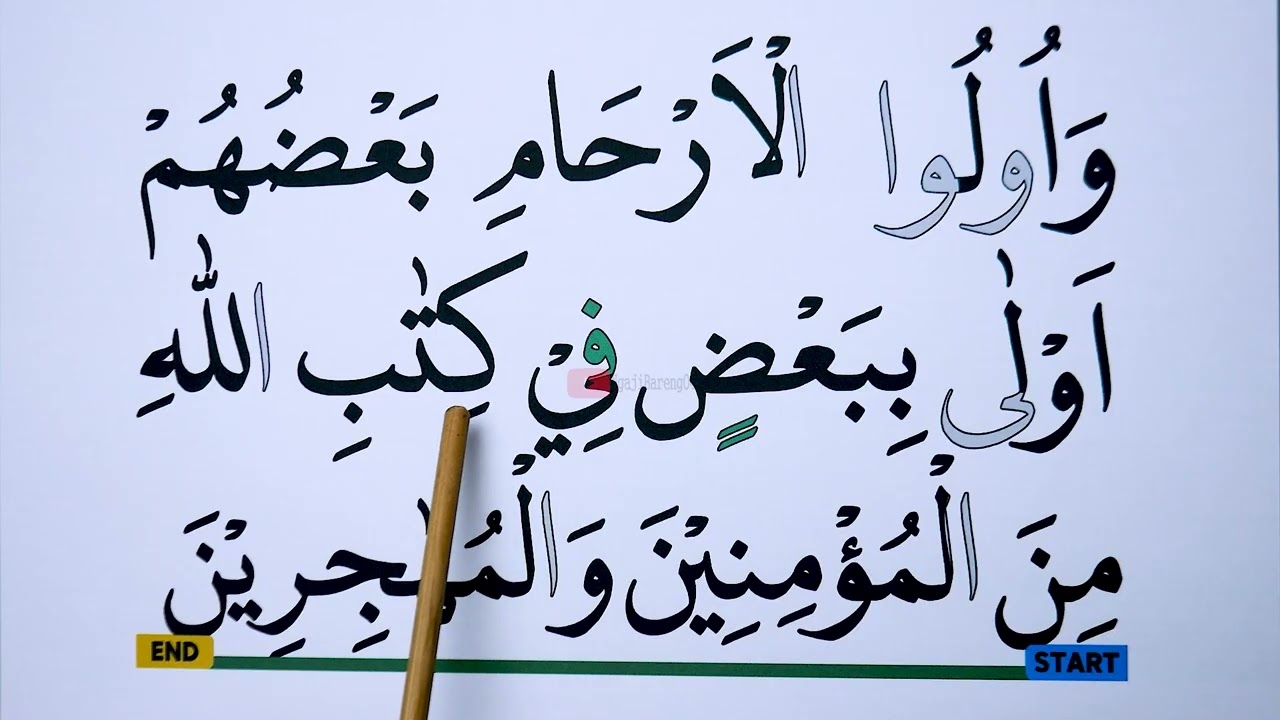 وَاُولُوا الْاَرْحَامِ بَعْضُهُمْ
اَوْلٰى بِبَعْضٍ فِيْ كِتٰبِ اللّٰهِ
مِنَ الْمُؤْمِنِيْنَ وَالْمُهٰجِرِيْنَ
END START